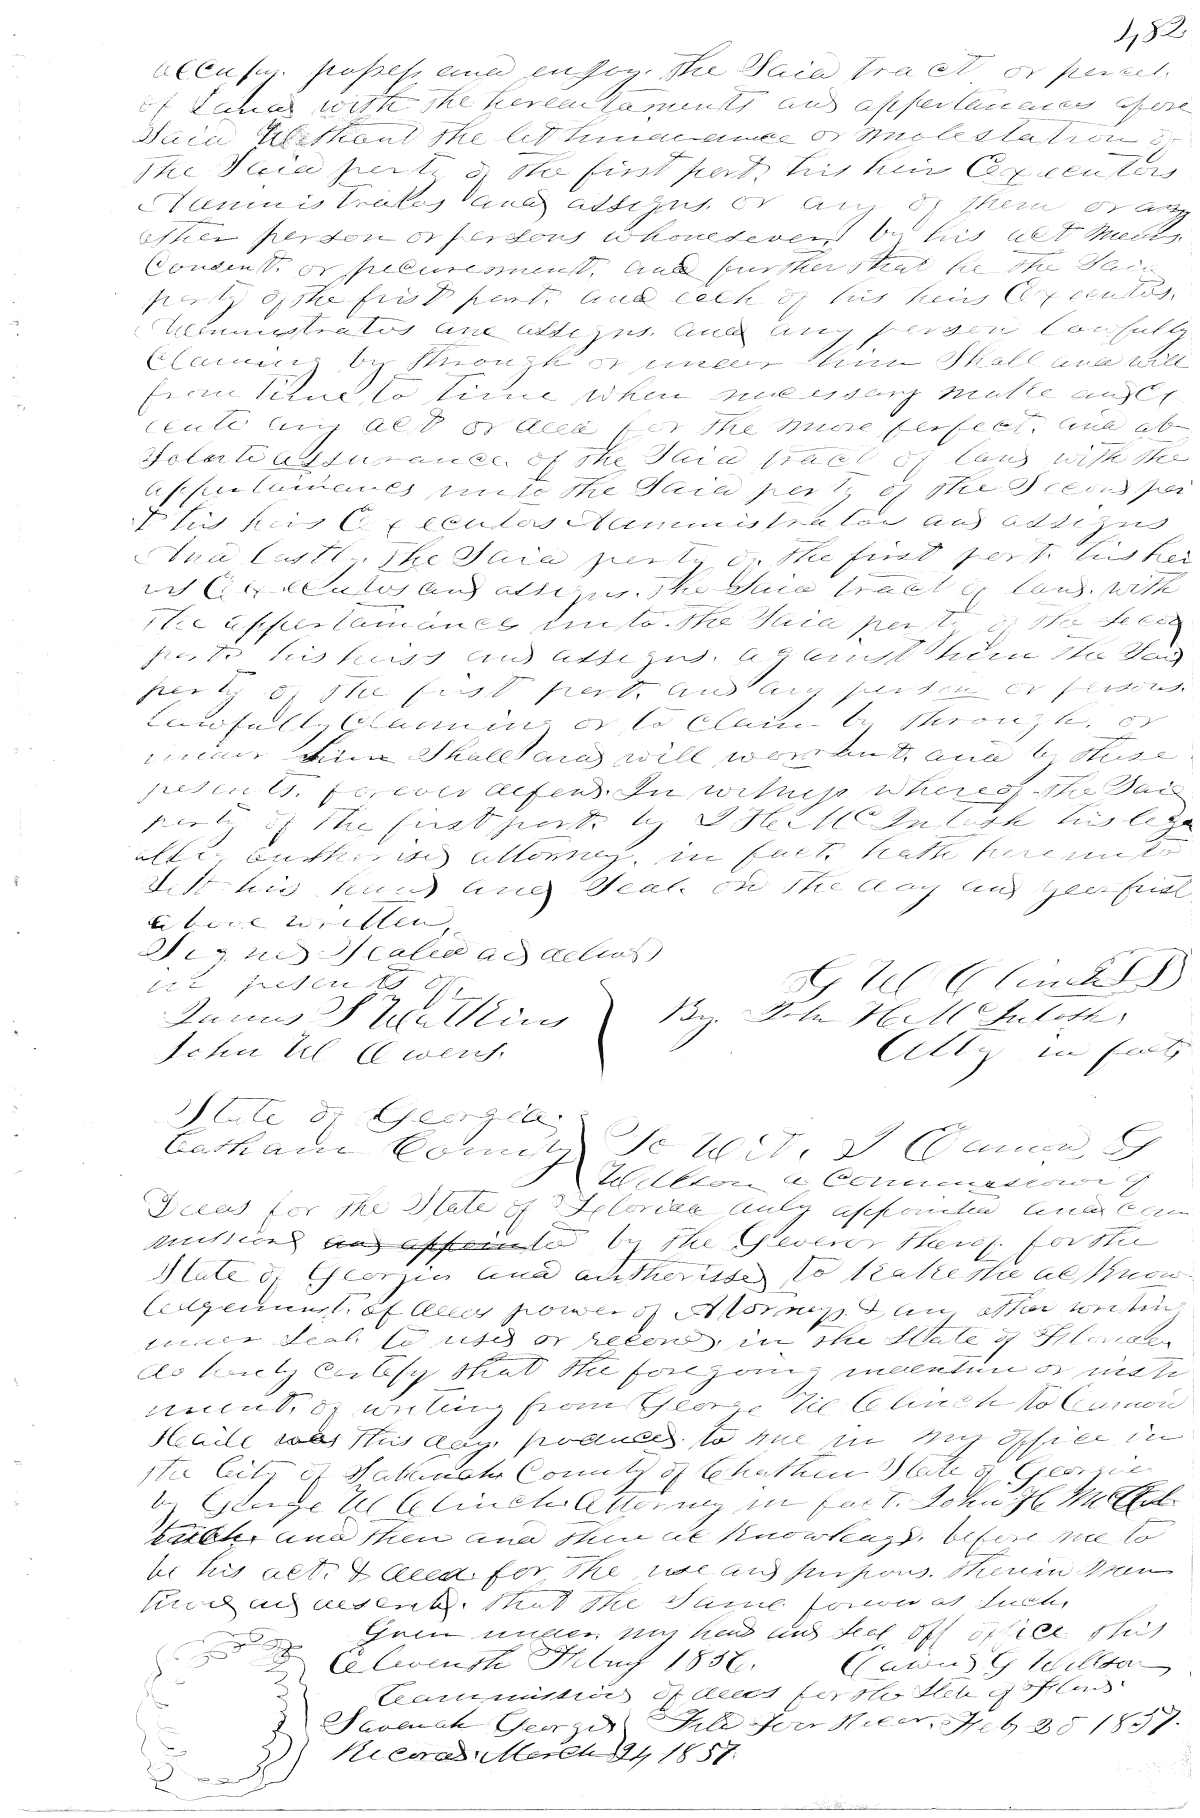 482
occupy. possess and enjoy. the Said tract or percel.
of Land with the hereditaments and appertanances afore
Said Without the let hinderance or molestation of
the Said perty of the first part, his heirs Executors
Administrators and assigns. or any of them or any
other person or persons whomesever, by his act means.
Consent. or precurement. and further that he the Said
perty of the first part. and each of his heirs Executors.
Administrators and assigns. and any person lawfully
Claiming by through or under him Shall and will
from time to time when necessary make and Ex
ecute any act or deed for the more perfect. and ab
solute assurance. of the Said tract of land with the
appertainances unto the Said perty of the Second per
t his heirs Executors Administrator and assigns
And Lastly. the Said perty of the first part. his hei
rs Executors and assigns. the Said tract of land. with
the appertainances unto. the Said perty of the Second
part, his heirs and assigns. against him the Said
perty of the first part. and any person or persons.
lawfully Claiming or to claim by through. or
under him Shall and will warrant. and by these
presents. forever defend. In witness whereof. the Said
perty of the first part. by J H McIntosh his lega
lly authorised attorney. in fact. hath hereunto
Set his hand and Seal. on the day and year first
above written,
Signed Sealed and delivd
in presents of.
G W Clinch LS
James S Watkins
By. John H McIntosh.
John W Owens.
Atty in fact,
State of Georgia.
Catham County
To Wit. I David, G
Willson a Commissioner of
Deeds for the State of Florida duly appointed and com
missioned and appointed by the Goveror therof. for the
State of Georgia and autherissed to take the acknow
ledgement. of deeds power of Attorneys & any other writing
under Seal to used or recored. in the State of Florida.
do herely certify that the foregoing indenture or instr
ument. of writing from George W Clinch to Edmond
Haile was this day. produced to me in my office in
the City of Savannah County of Chatham State of Georgia
by George W Clinch. Attorney in fact. John H McInt
and then and there acknowledgd. before me to
be his act. & deed. for the use and purpous. therein men
tioned and desired. that the Same
as Such.
Given under my hand and Seal off office this
Eleventh Febuy 1856. David G Willson
Commissiond of deeds for the State of Florid.
Savenah Georgia File Feb 25 1857.
Record. March 24 1857.